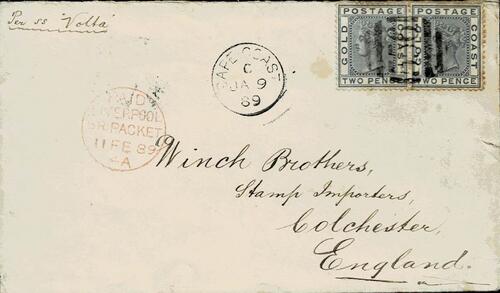 Per ss "Volta"
GOLD POSTAGE COAST
TWO PENCE
GOLD POSTAGE COAST
TWO PENCE
CAPE COAST
C
JA 9
89
PAID
LIVERPOOL
BR. PACKET
11 FE 89
4A
Winch Brothers,
Stamp Importers,
Colchester,
England.